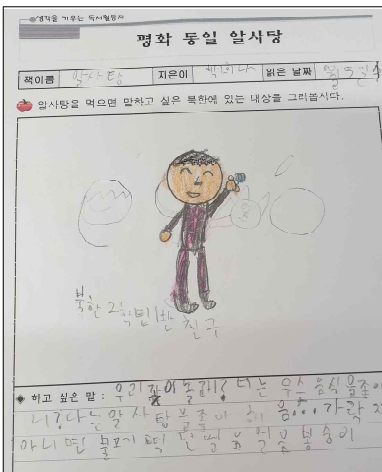 생각을 키우는 독서활동지
평화 통일 알사탕
책이름 알사탕 지은이 백희나 읽은 날짜 월 일
알사탕을 먹으면 말하고 싶은 북한에 있는 대상을 그려봅시다.
북한 2학년 1반 친구
하고 싶은 말 : 우리 놀래? 너는 무슨 음식을 좋아
니? 나는 알사탕 좋 음... 가락지
아니면 떡 얼음 봉숭이